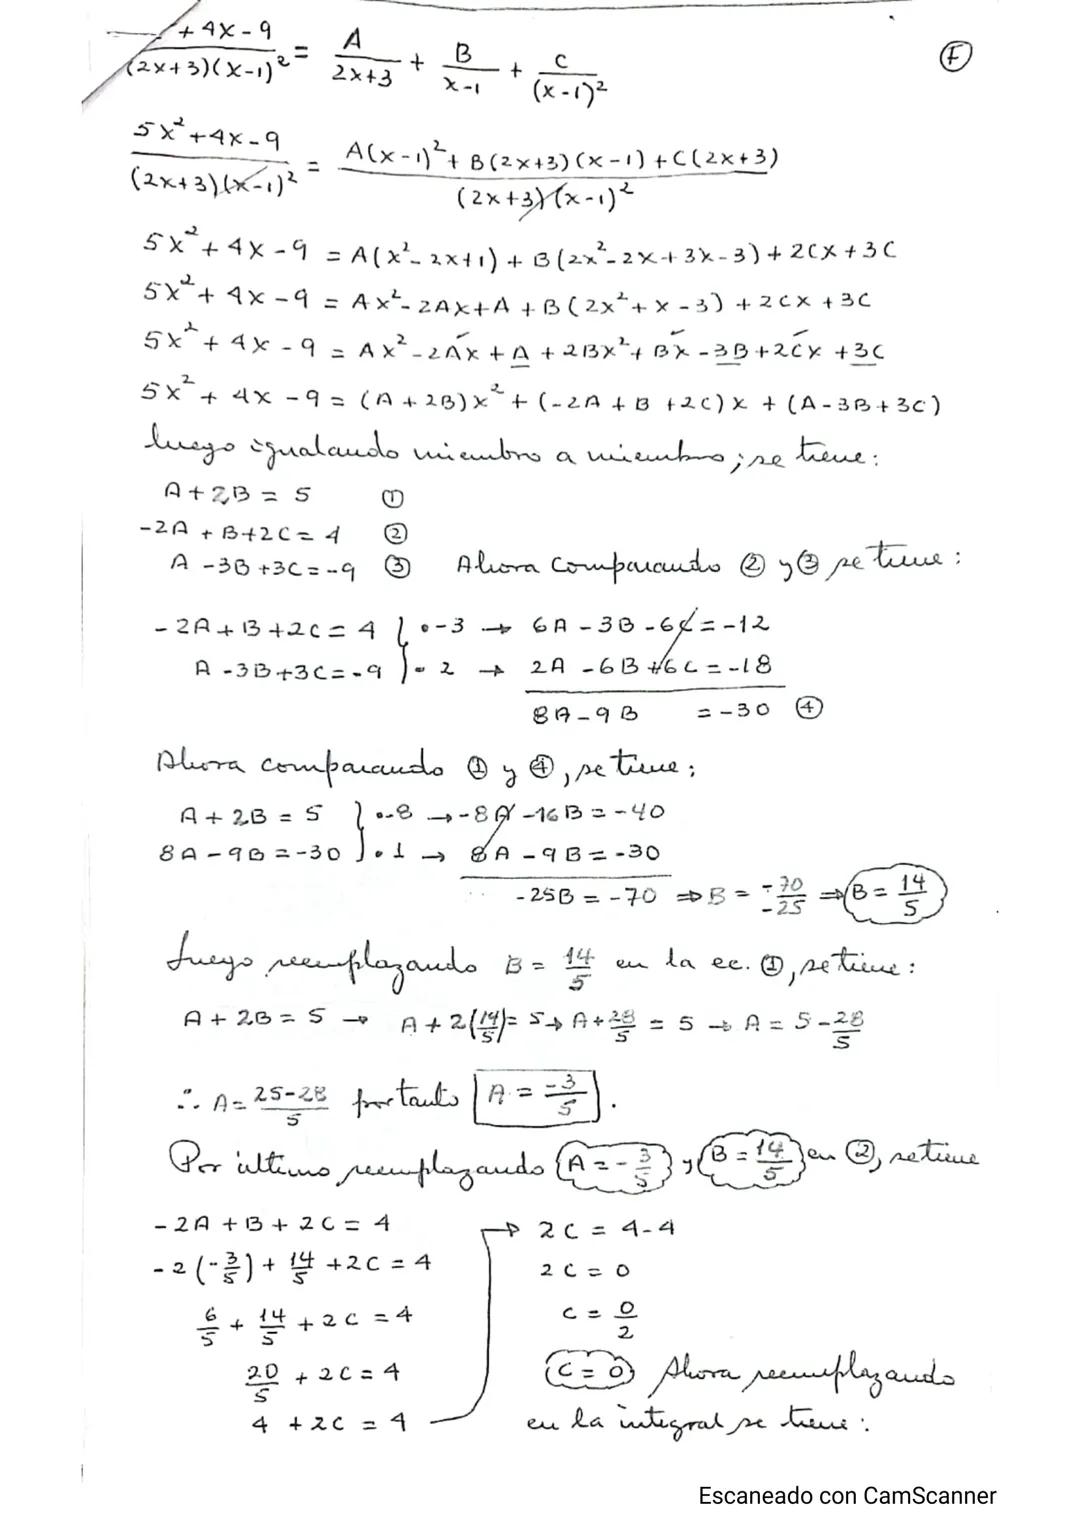 + 4x - 9 / (2x+3)(x-1)² = A / 2x+3 + B / x-1 + C / (x-1)² (F)
5x² + 4x - 9 / (2x+3)(x-1)² = A(x-1)² + B(2x+3)(x-1) + C(2x+3) / (2x+3)(x-1)²
5x² + 4x - 9 = A(x² - 2x+1) + B(2x² - 2x + 3x - 3) + 2Cx + 3C
5x² + 4x - 9 = Ax² - 2Ax + A + B(2x² + x - 3) + 2Cx + 3C
5x² + 4x - 9 = Ax² - 2Ax + A + 2Bx² + Bx - 3B + 2Cx + 3C
5x² + 4x - 9 = (A + 2B)x² + (-2A + B + 2C)x + (A - 3B + 3C)
luego igualando miembro a miembro; se tiene:
A + 2B = 5 ①
-2A + B + 2C = 4 ②
A - 3B + 3C = -9 ③ Ahora comparando ② y ③ se tiene:
-2A + B + 2C = 4 } · -3 → 6A - 3B - 6C = -12
A - 3B + 3C = -9 } · 2 → 2A - 6B + 6C = -18
8A - 9B = -30 ④
Ahora comparando ① y ④, se tiene;
A + 2B = 5 } · -8 → -8A - 16B = -40
8A - 9B = -30 } · 1 → 8A - 9B = -30
-25B = -70 ⇒ B = -70/-25 ⇒ B = 14/5
Luego reemplazando B = 14/5 en la ec. ①, se tiene:
A + 2B = 5 → A + 2(14/5) = 5 → A + 28/5 = 5 → A = 5 - 28/5
∴ A = 25-28/5 por tanto A = -3/5.
Por último reemplazando A = -3/5 y B = 14/5 en ②, se tiene
-2A + B + 2C = 4
-2(-3/5) + 14/5 + 2C = 4
6/5 + 14/5 + 2C = 4
20/5 + 2C = 4
4 + 2C = 4
→ 2C = 4-4
2C = 0
C = 0/2
C = 0 Ahora reemplazando
en la integral se tiene:
Escaneado con CamScanner